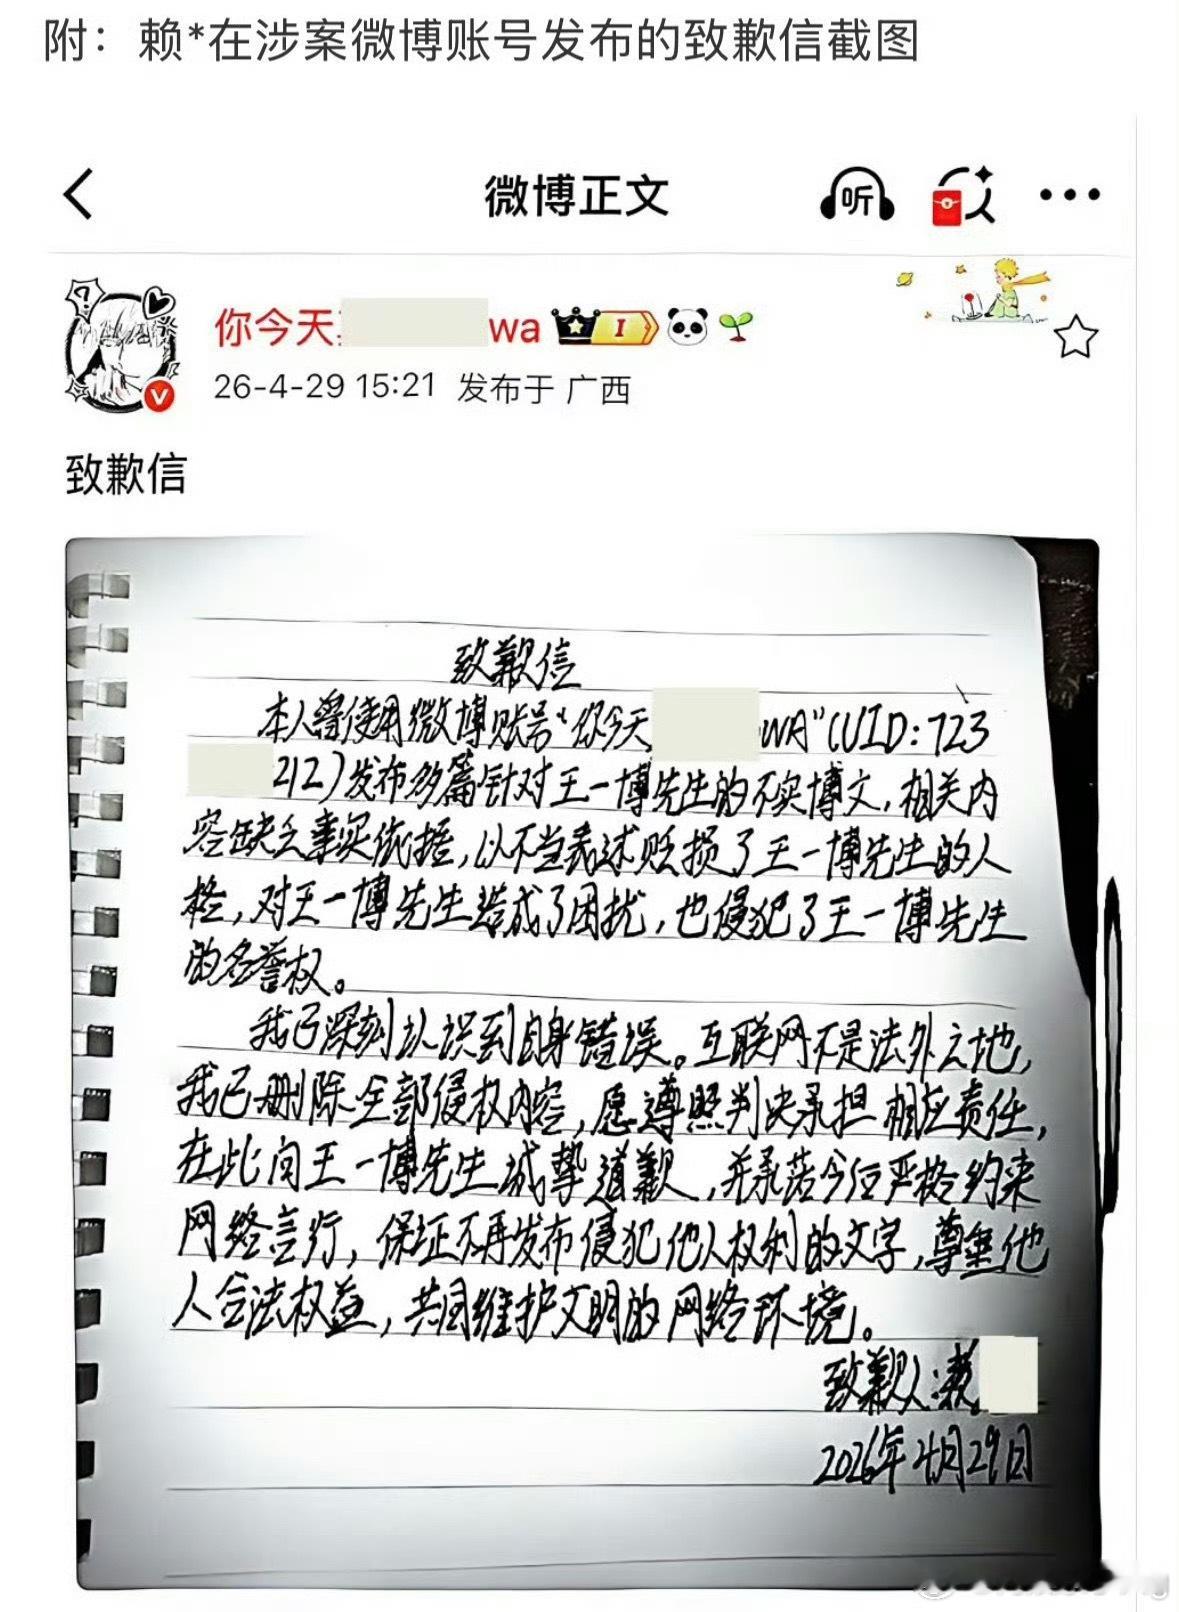 附：赖*在涉案微博账号发布的致歉信截图
微博正文
听
你今天 wa
I
V
26-4-29 15:21 发布于 广西
致歉信
致歉信
本人曾使用微博账号“你今天 WA”(UID:723
212)发布多篇针对王一博先生的不实博文，相关内
容缺乏事实依据，以不当表述贬损了王一博先生的人
格，对王一博先生造成了困扰，也侵犯了王一博先生
的名誉权。
我已深刻认识到自身错误。互联网不是法外之地，
我已删除全部侵权内容，愿遵照判决承担相应责任，
在此向王一博先生诚挚道歉，并承诺今后严格约束
网络言行，保证不再发布侵犯他人权利的文字，尊重他
人合法权益，共同维护文明的网络环境。
致歉人：赖
2026年4月29日